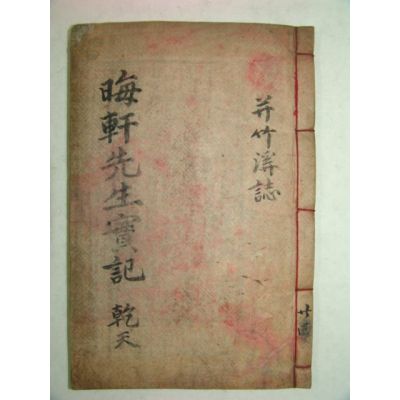 并竹溪誌
晦軒先生實記 乾天